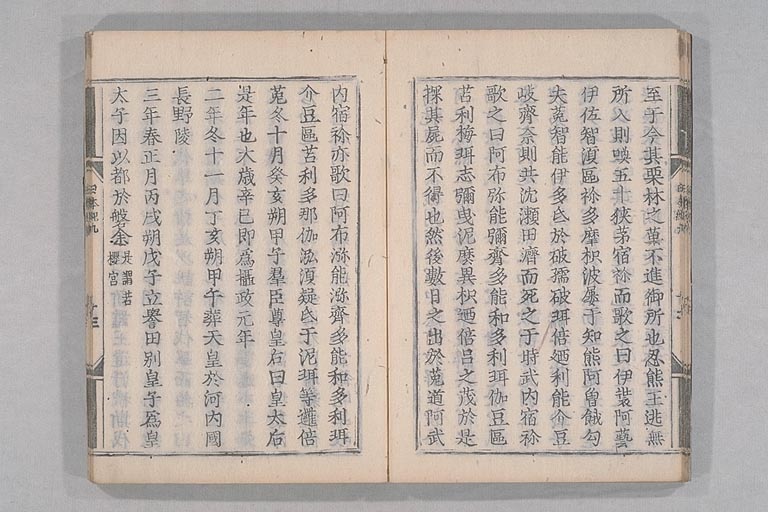 至于今其栗林之菓不進御所也忍熊王逃無
所入則喚五十狹茅宿祢而歌之曰伊裝阿藝
伊佐智湏區祢多摩枳波屢于知能阿曽餓勾
夫菟智能伊多氐於破孺破珥倍廼利能介豆
岐齊奈則共沈瀬田濟而死之于時武內宿祢
歌之曰阿布弥能彌齊多能和多利珥伽豆區
苫利梅珥志彌曳泥麼異枳廼倍呂之茂於是
探其屍而不得也然後數日之出於菟道阿武
內宿祢亦歌曰阿布沵能沵齊多能和多利珥
介豆區苫利多那伽沵湏疑氐于泥珥等邏倍
菟冬十月癸亥朔甲子群臣尊皇后曰皇太后
是年也大歳辛巳即爲攝政元年
二年冬十一月丁亥朔甲午葬天皇於河內國
長野陵
三年春正月丙戌朔戊子立譽田別皇子爲皇
太子因以都於磐余是謂若櫻宮
日本紀九